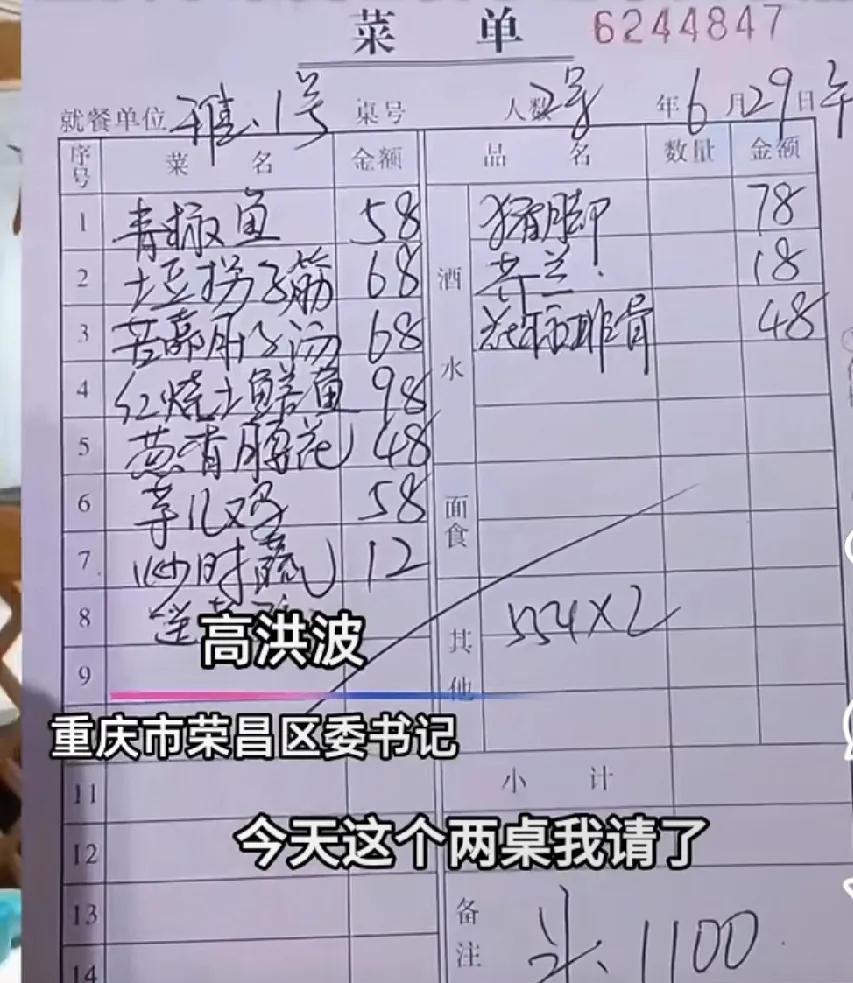 菜 单 6244847
就餐单位 雅.1号 桌号 人数 2号 年 6 月 29 日 午
序号 菜 名 金额 品 名 数量 金额
1 青椒鱼 58 猪脚 78
2 土豆拐子筋 68 酒水 芥兰 18
3 68 排骨 48
4 红烧土鳝鱼 98
5 葱香腰花 48
6 芋儿鸡 58 面食
7 炒时蔬 12
8 送 其他 554×2
高洪波
9
重庆市荣昌区委书记
11 小 计
12
今天这个两桌我请了
13 备注 1100
14